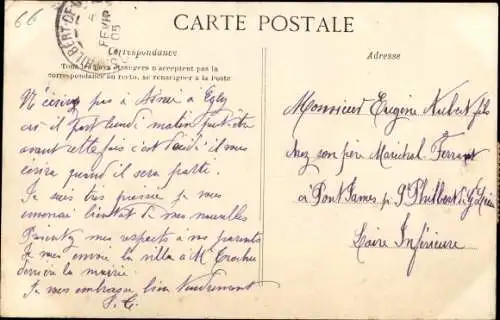 66
PHILBERT-DE-
FEVR
05
CARTE POSTALE
Correspondance
Tous les pays étrangers n'acceptent pas la
correspondance au recto, se renseigner à la Poste
Adresse
N'écrivez pas à Aimé à Egly
car il part lundi matin peut être
avant cette fois c'est il vous
écrira quand il sera parti.
Je suis très pressé je vous
enverrai bientôt de mes nouvelles
mes respects à vos parents
Je vous envoie la villa à M.
derrière la mairie.
Je vous embrasse bien tendrement
S. G.
Monsieur Eugène Hubert fils
chez son père Maréchal Ferrant
à Pont James p. St Philbert de Gd Lieu
Loire Inférieure